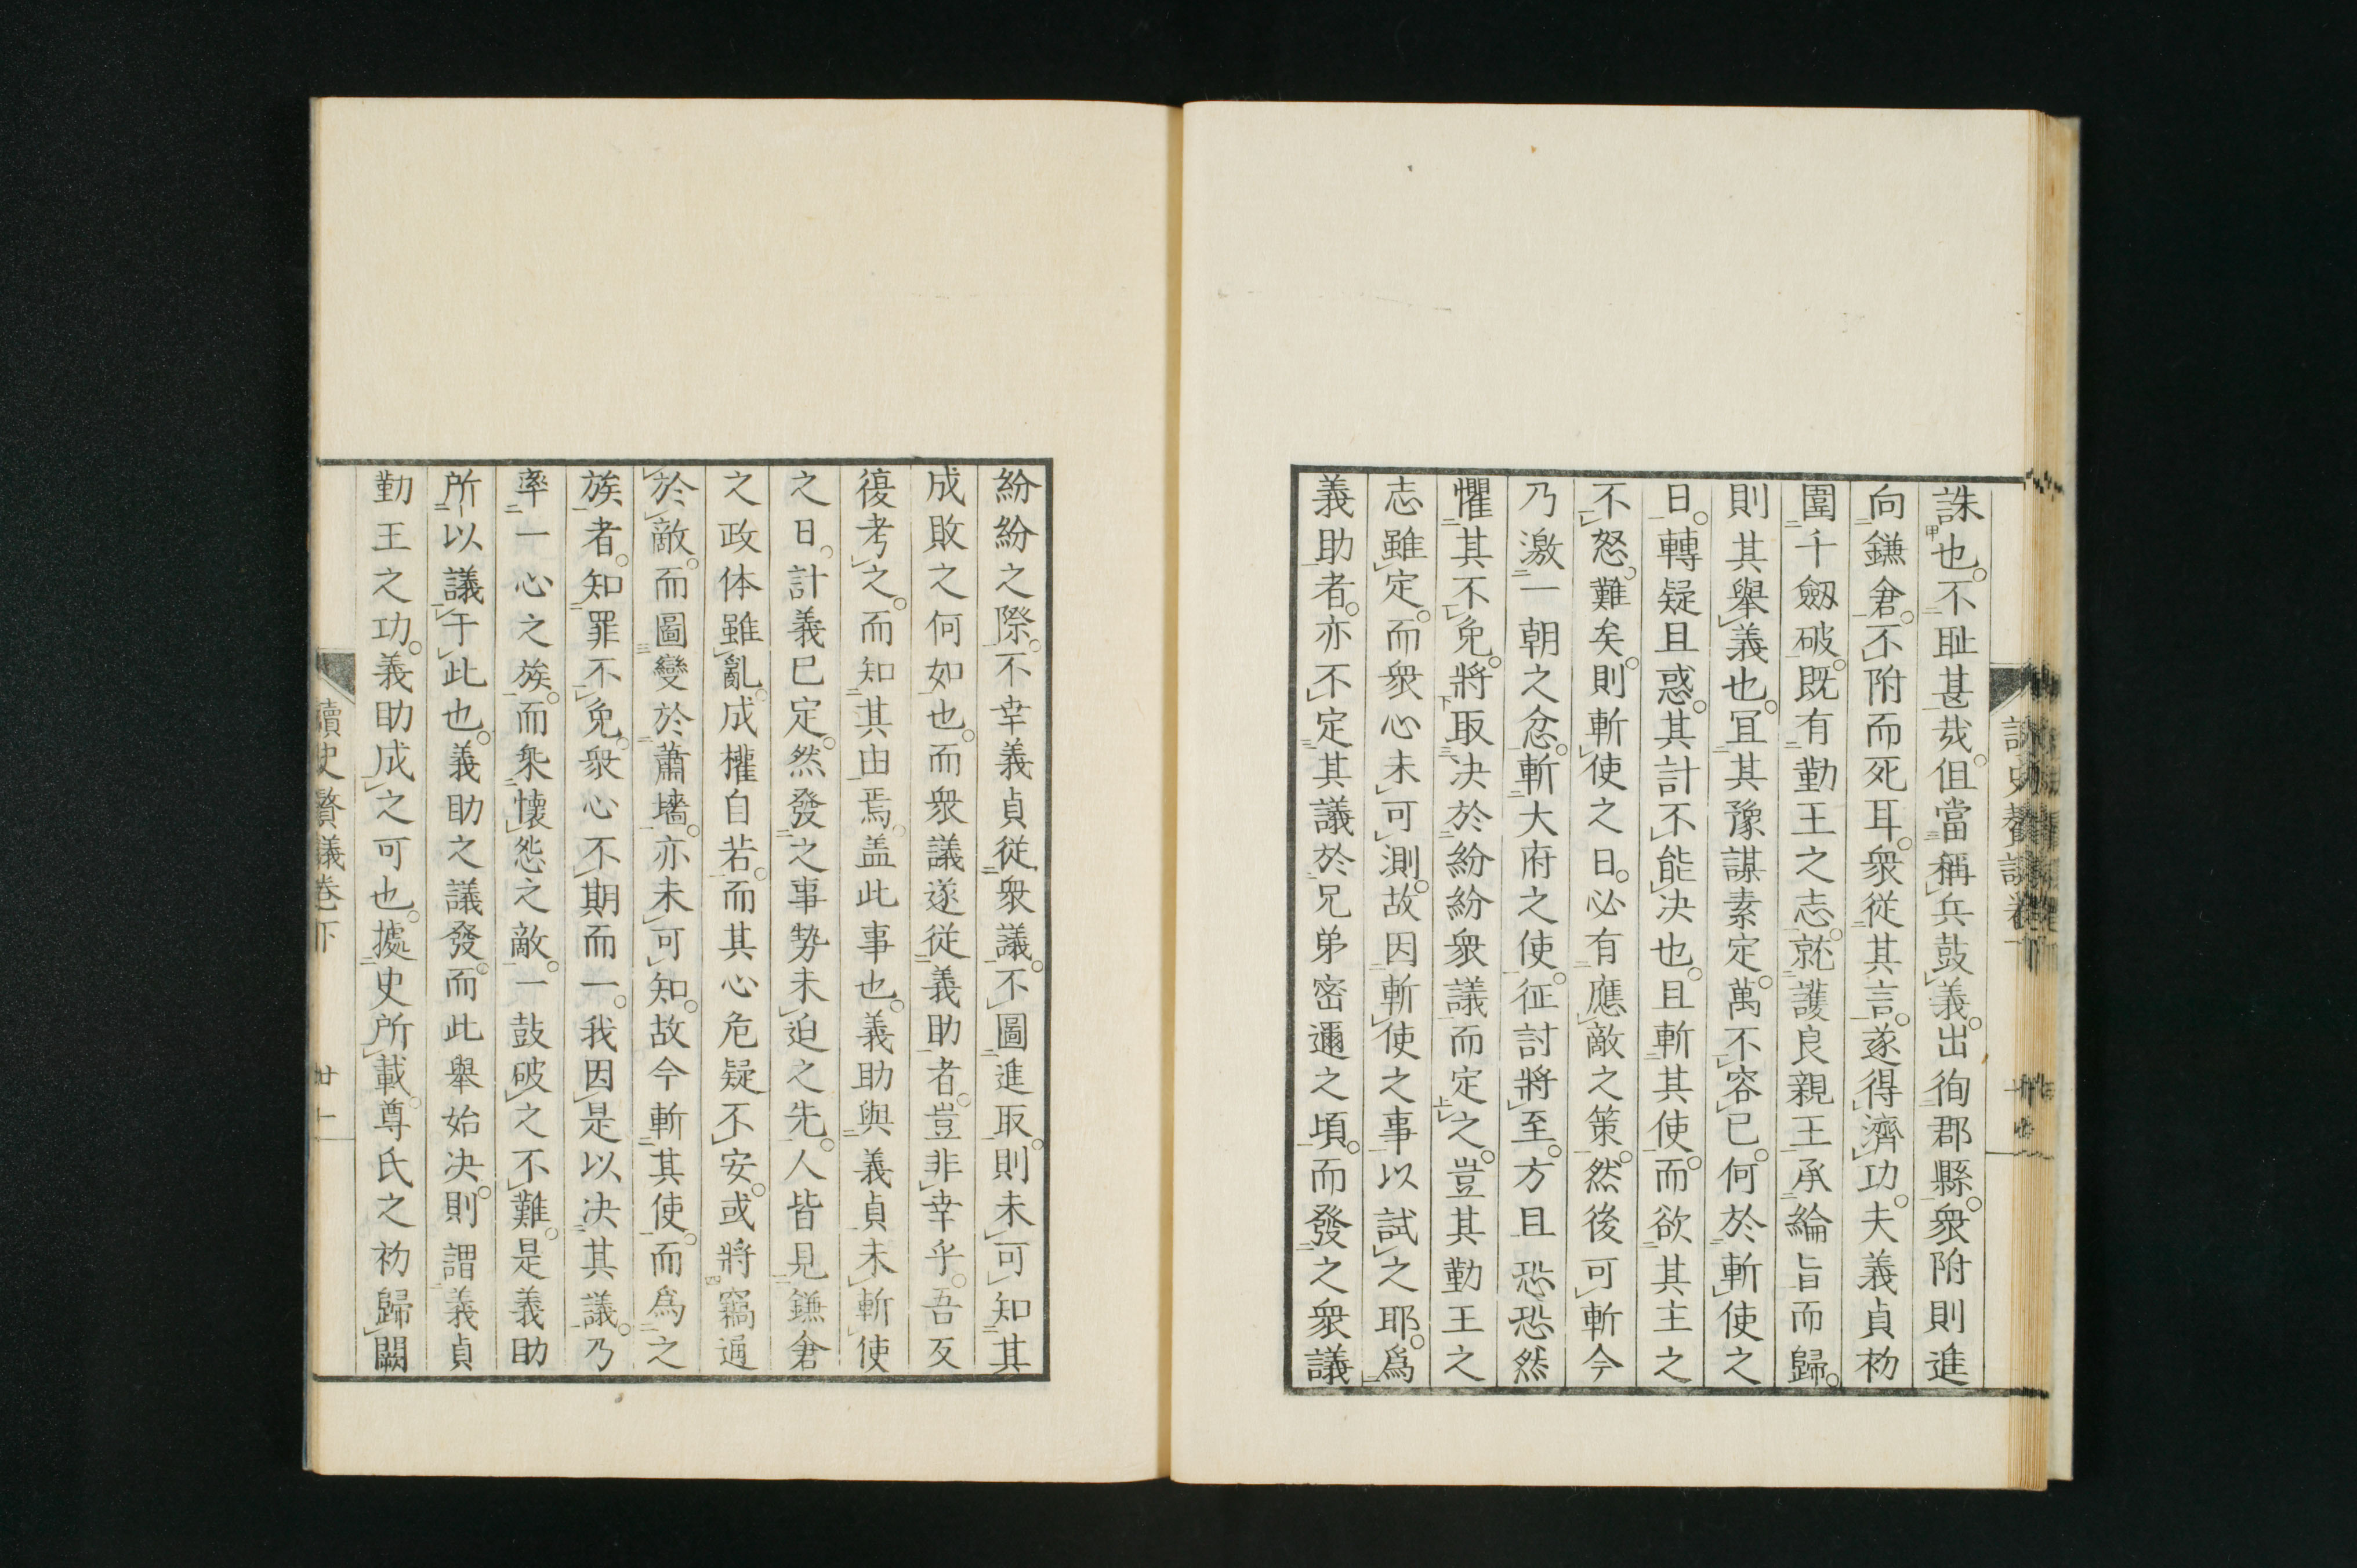 誅也。不耻甚哉。但當稱兵鼓義。出徇郡縣。衆附則進
向鎌倉。不附而死耳。衆從其言。遂得濟功。夫義貞初
圍千劔破。既有勤王之志。就護良親王承綸旨而歸。
則其舉義也。冝其豫謀素定。萬不容已。何於斬使之
日。轉疑且惑。其計不能决也。且斬其使。而欲其主之
不怒。難矣。則斬使之日。必有應敵之策。然後可斬今
乃激一朝之忿。斬大府之使。征討將至。方且恐恐然
懼其不免。將取决於紛紛衆議而定之。豈其勤王之
志雖定。而衆心未可測。故因斬使之事以試之耶。爲
義助者。亦不定其議於兄弟密邇之頃。而發之衆議
紛紛之際。不幸義貞從衆議。不圖進取。則未可知其
成敗之何如也。而衆議遂從義助者。豈非幸乎。吾反
復考之。而知其由焉。盖此事也。義助與義貞未斬使
之日。計義已定。然發之事勢未迫之先。人皆見鎌倉
之政体雖亂。成權自若。而其心危疑不安。或將竊通
於敵。而圖變於蕭墻。亦未可知。故今斬其使。而爲之
族者。知罪不免。衆心不期而一。我因是以决其議。乃
率一心之族。而乘懷怨之敵。一鼓破之不難。是義助
所以議于此也。義助之議發。而此舉始决。則謂義貞
勤王之功。義助成之可也。據史所載。尊氏之初歸闕
讀史贅議卷下 廿一